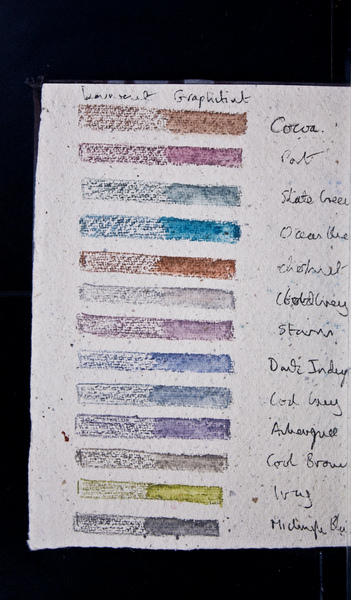 Derwent Graphitint
Cocoa.
Port
Slate Green
Ocean Blue
chestnut
Cloud Grey
Storm
Dark Indig
Cool Grey
Aubergine
Cool Brown
Ivy
Midnight Bla